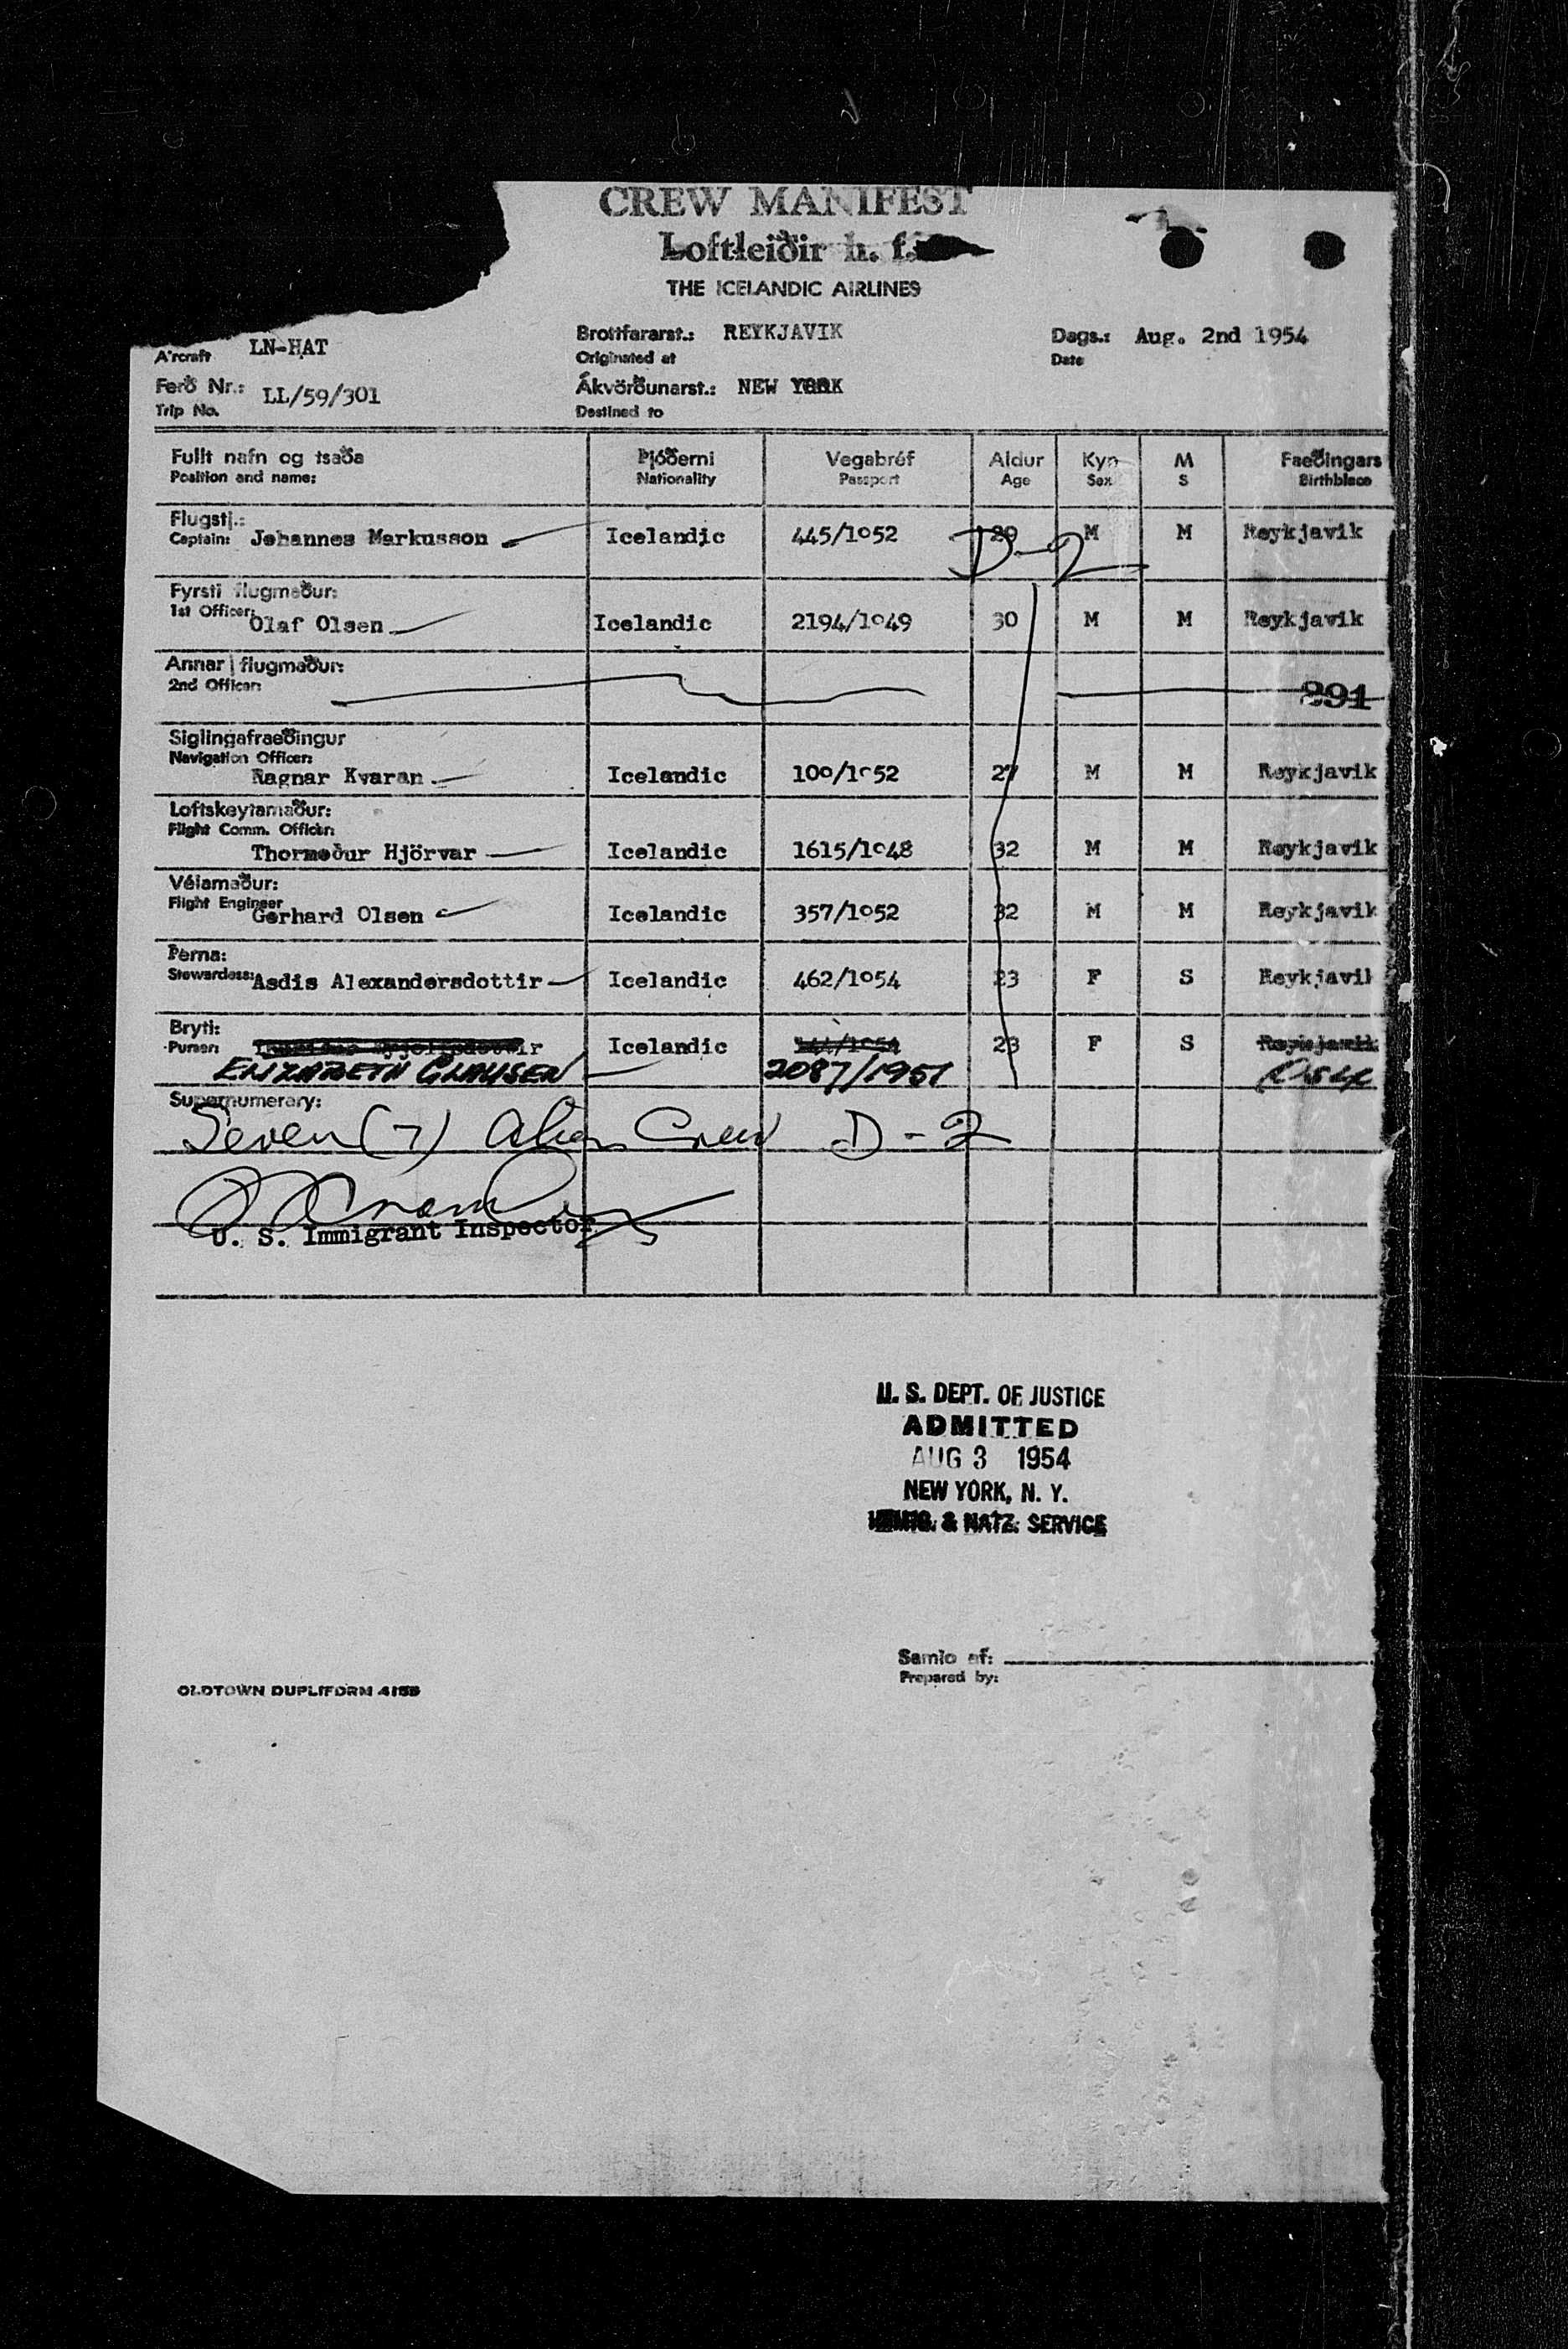 CREW MANIFEST
Loftleiðir h. f.
THE ICELANDIC AIRLINES
Aircraft LN-HAT
Brottfararst.: REYKJAVIK
Originated at
Dags.: Aug. 2nd 1954
Date
Ferð Nr.: LL/59/301
Trip No.
Ákvörðunarst.: NEW YORK
Destined to
Fullt nafn og tsaða Þjóðerni Vegabréf Aldur Kyn M Faeðingars
Position and name: Nationality Passport Age Sex S Birthblace
Flugstj.:
Captain: Johannes Markusson Icelandic 445/1952 29 M M Reykjavik
D-2
Fyrsti flugmaður:
1st Officer: Olaf Olsen Icelandic 2194/1949 30 M M Reykjavik
Annar flugmaður:
2nd Officer: 891
Siglingafraeðingur
Navigation Officer:
Ragnar Kvaran Icelandic 100/1952 27 M M Reykjavik
Loftskeytamaður:
Flight Comm. Officer:
Thormoður Hjörvar Icelandic 1615/1948 32 M M Reykjavik
Vélamaður:
Flight Engineer Gerhard Olsen Icelandic 357/1952 32 M M Reykjavik
Þerna:
Stewardess: Asdis Alexandersdottir Icelandic 462/1954 23 F S Reykjavik
Bryti:
Purser: Icelandic 23 F S Reykjavik
ELIZABETH CLAUSEN 2087/1951
Supernumerary:
Seven (7) Alien Crew D-2
U. S. Immigrant Inspector
U. S. DEPT. OF JUSTICE
ADMITTED
AUG 3 1954
NEW YORK, N. Y.
IMMIG. & NATZ. SERVICE
Samið af:
Prepared by:
OLDTOWN DUPLIFORM 4155